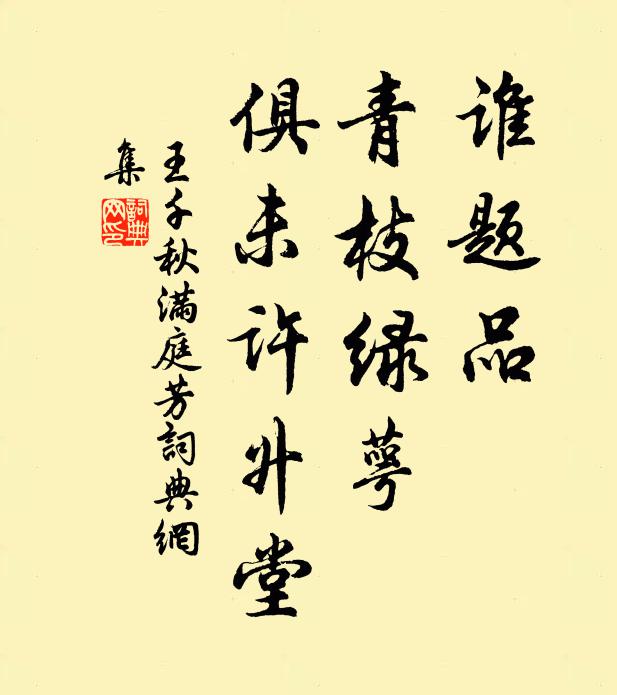 谁题品
青枝绿萼
俱未许升堂
王千秋满庭芳詞典網
集
詞典
网印